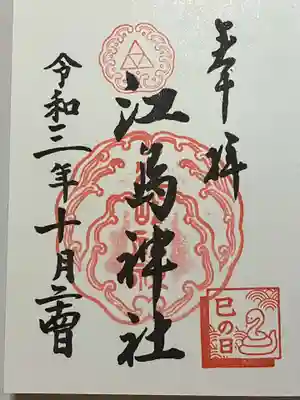 奉拝
江島神社
令和三年十月
巳の日